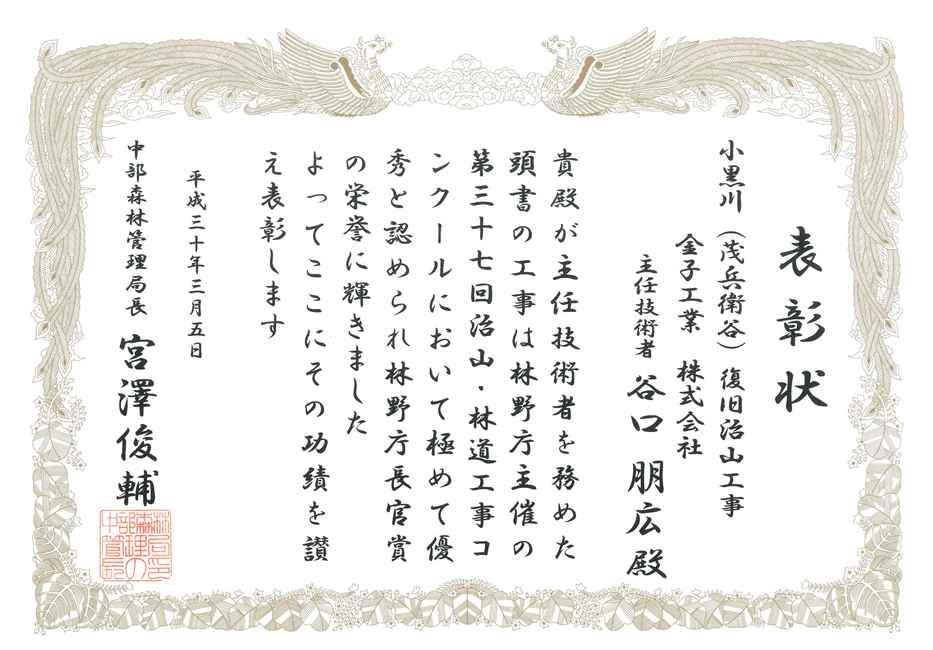 表彰状
小黒川（茂兵衛谷）復旧治山工事
金子工業 株式会社
主任技術者 谷口 朋広 殿
貴殿が主任技術者を務めた
頭書の工事は林野庁主催の
第三十七回治山・林道工事コ
ンクールにおいて極めて優
秀と認められ林野庁長官賞
の栄誉に輝きました
よってここにその功績を讃
え表彰します
平成三十年三月五日
中部森林管理局長 宮澤俊輔